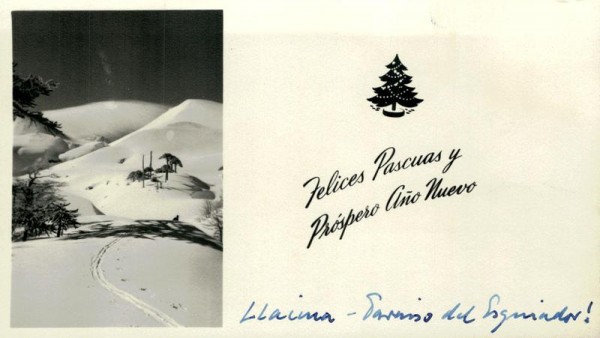 Felices Pascuas y
Próspero Año Nuevo
Llaima - Paraiso del Esquiador!